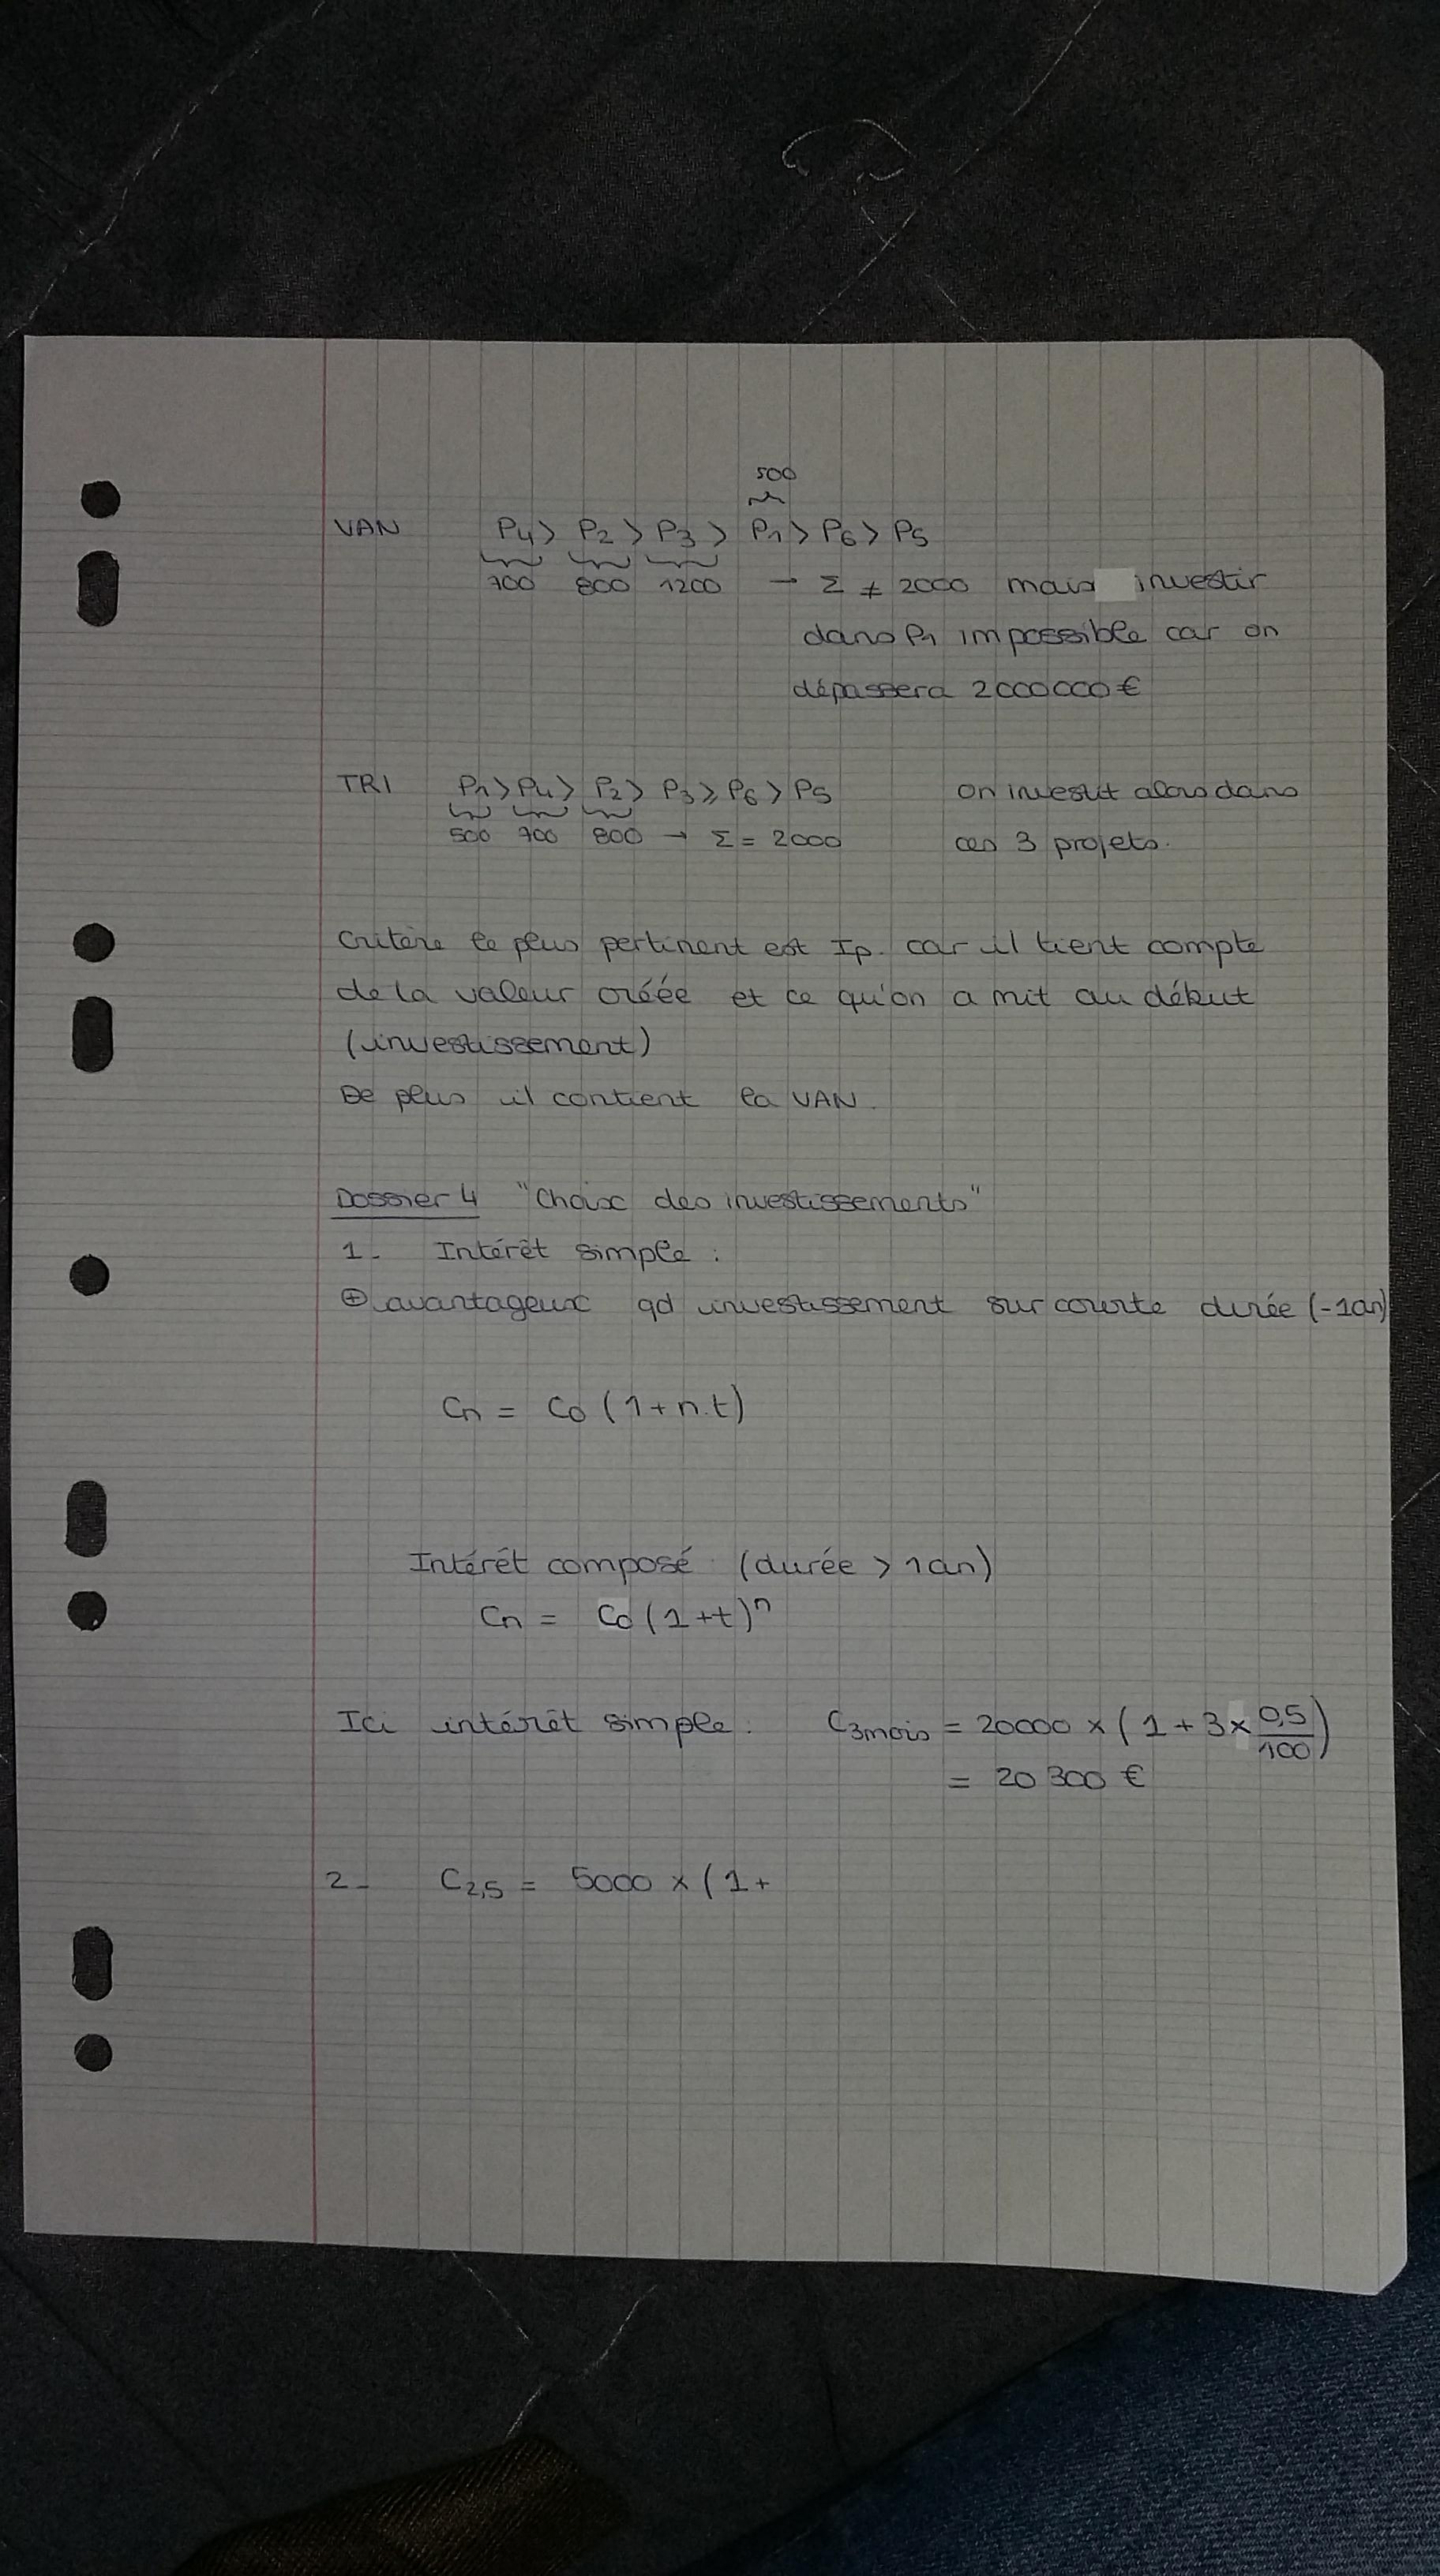 500
VAN P4 > P2 > P3 > P1 > P6 > P5
700 800 1200 → Σ ≠ 2000 mais investir
dans P1 impossible car on
dépassera 2000000 €
TRI P1 > P4 > P2 > P3 ≥ P6 > P5 on investit alors dans
500 700 800 → Σ = 2000 ces 3 projets.
Critère le plus pertinent est Ip. car il tient compte
de la valeur créée et ce qu'on a mit au début
(investissement)
De plus il contient la VAN.
Dossier 4 "Choix des investissements"
1- Intérêt simple :
⊕ avantageux qd investissement sur courte durée (-1an)
Cn = C0 (1+n.t)
Intérêt composé (durée > 1an)
Cn = C0 (1+t)ⁿ
Ici intérêt simple. C3mois = 20000 × (1 + 3 × 0,5/100)
= 20 300 €
2- C2,5 = 5000 × (1 +